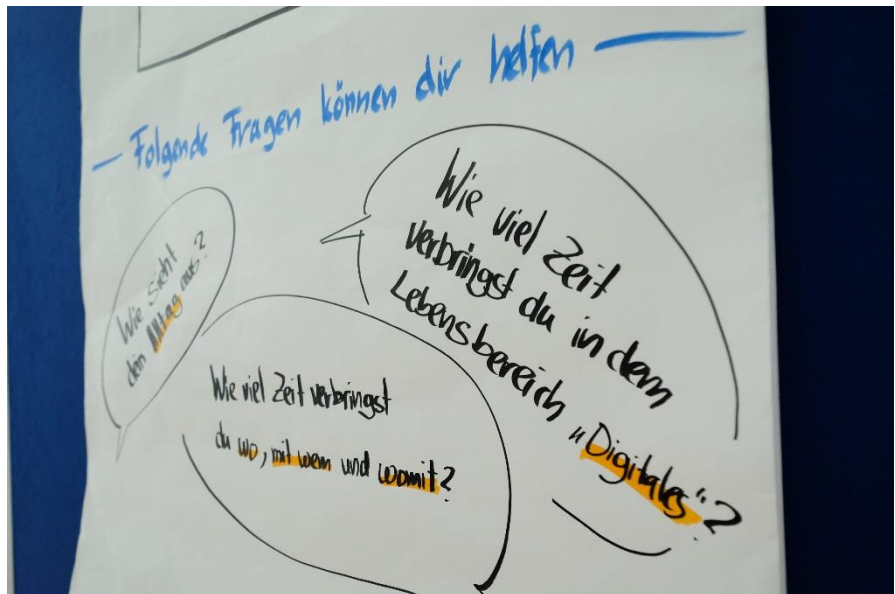 — Folgende Fragen können dir helfen —
Wie sieht
dein Alltag aus?
Wie viel Zeit
verbringst du in dem
Lebensbereich
„Digitales“?
Wie viel Zeit verbringst
du wo, mit wem und womit?